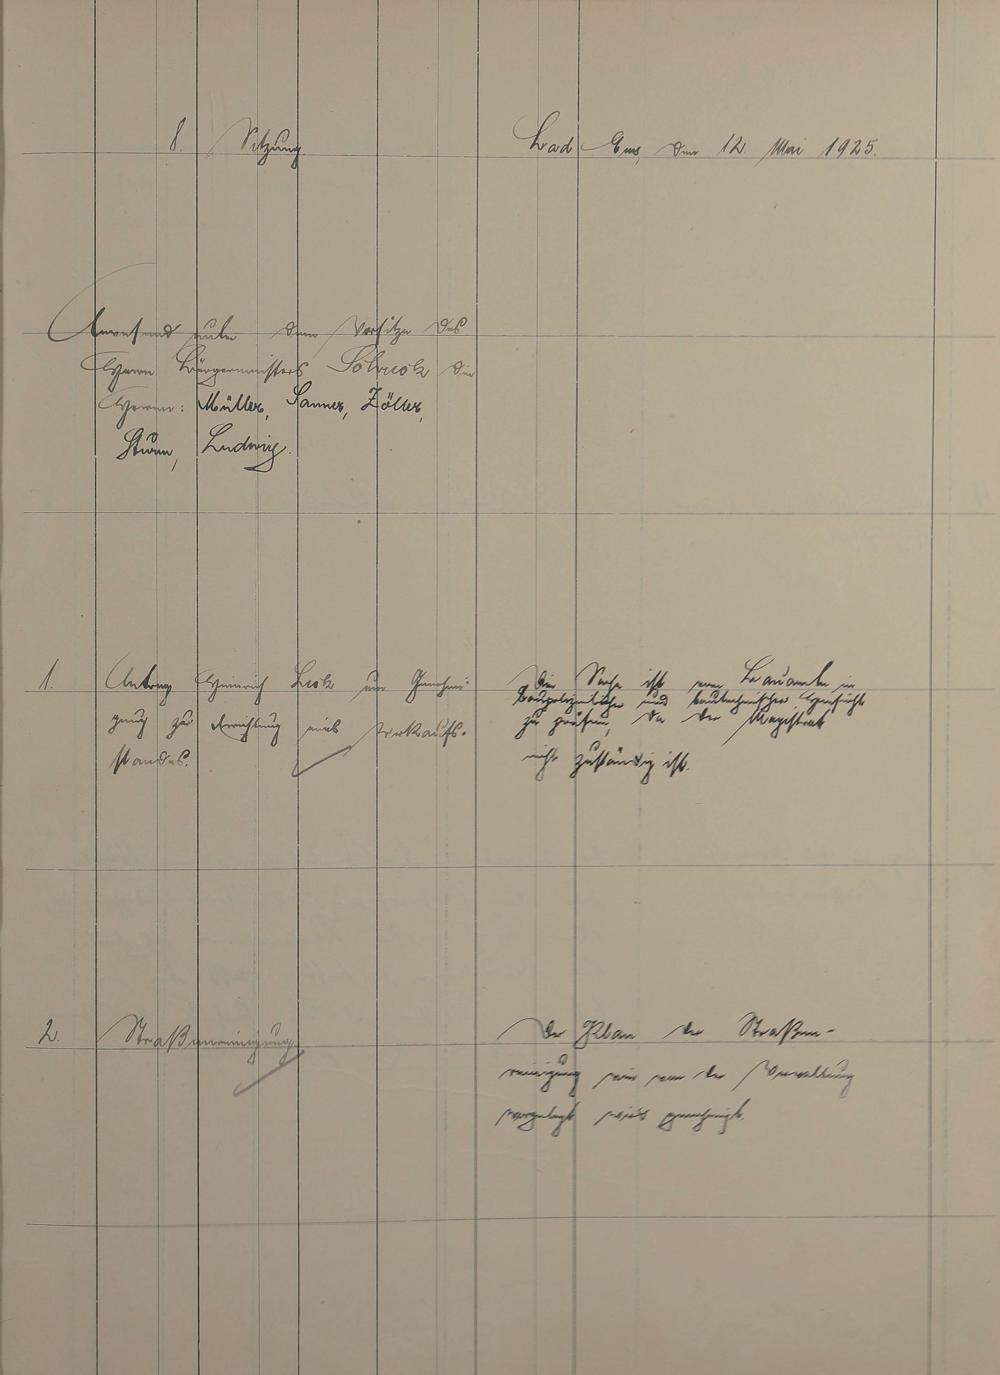 8. Sitzung
Bad Ems, den 12. Mai 1925.
Anwesend unter dem Vorsitze des
Herrn Bürgermeisters Schuck die
Herren: Müller, Sanner, Zöller,
Sturm, Ludwig.
1. Antrag Heinrich um Genehmi-
gung zur Errichtung eines Verkaufs-
standes.
Die Sache ist vom Bauamte in
baupolizeilicher und bautechnischer Hinsicht
zu prüfen, da der Magistrat
nicht zuständig ist.
2. Straßenreinigung
Der Plan der Straßen-
reinigung wie von der Verwaltung
vorgelegt wird genehmigt.